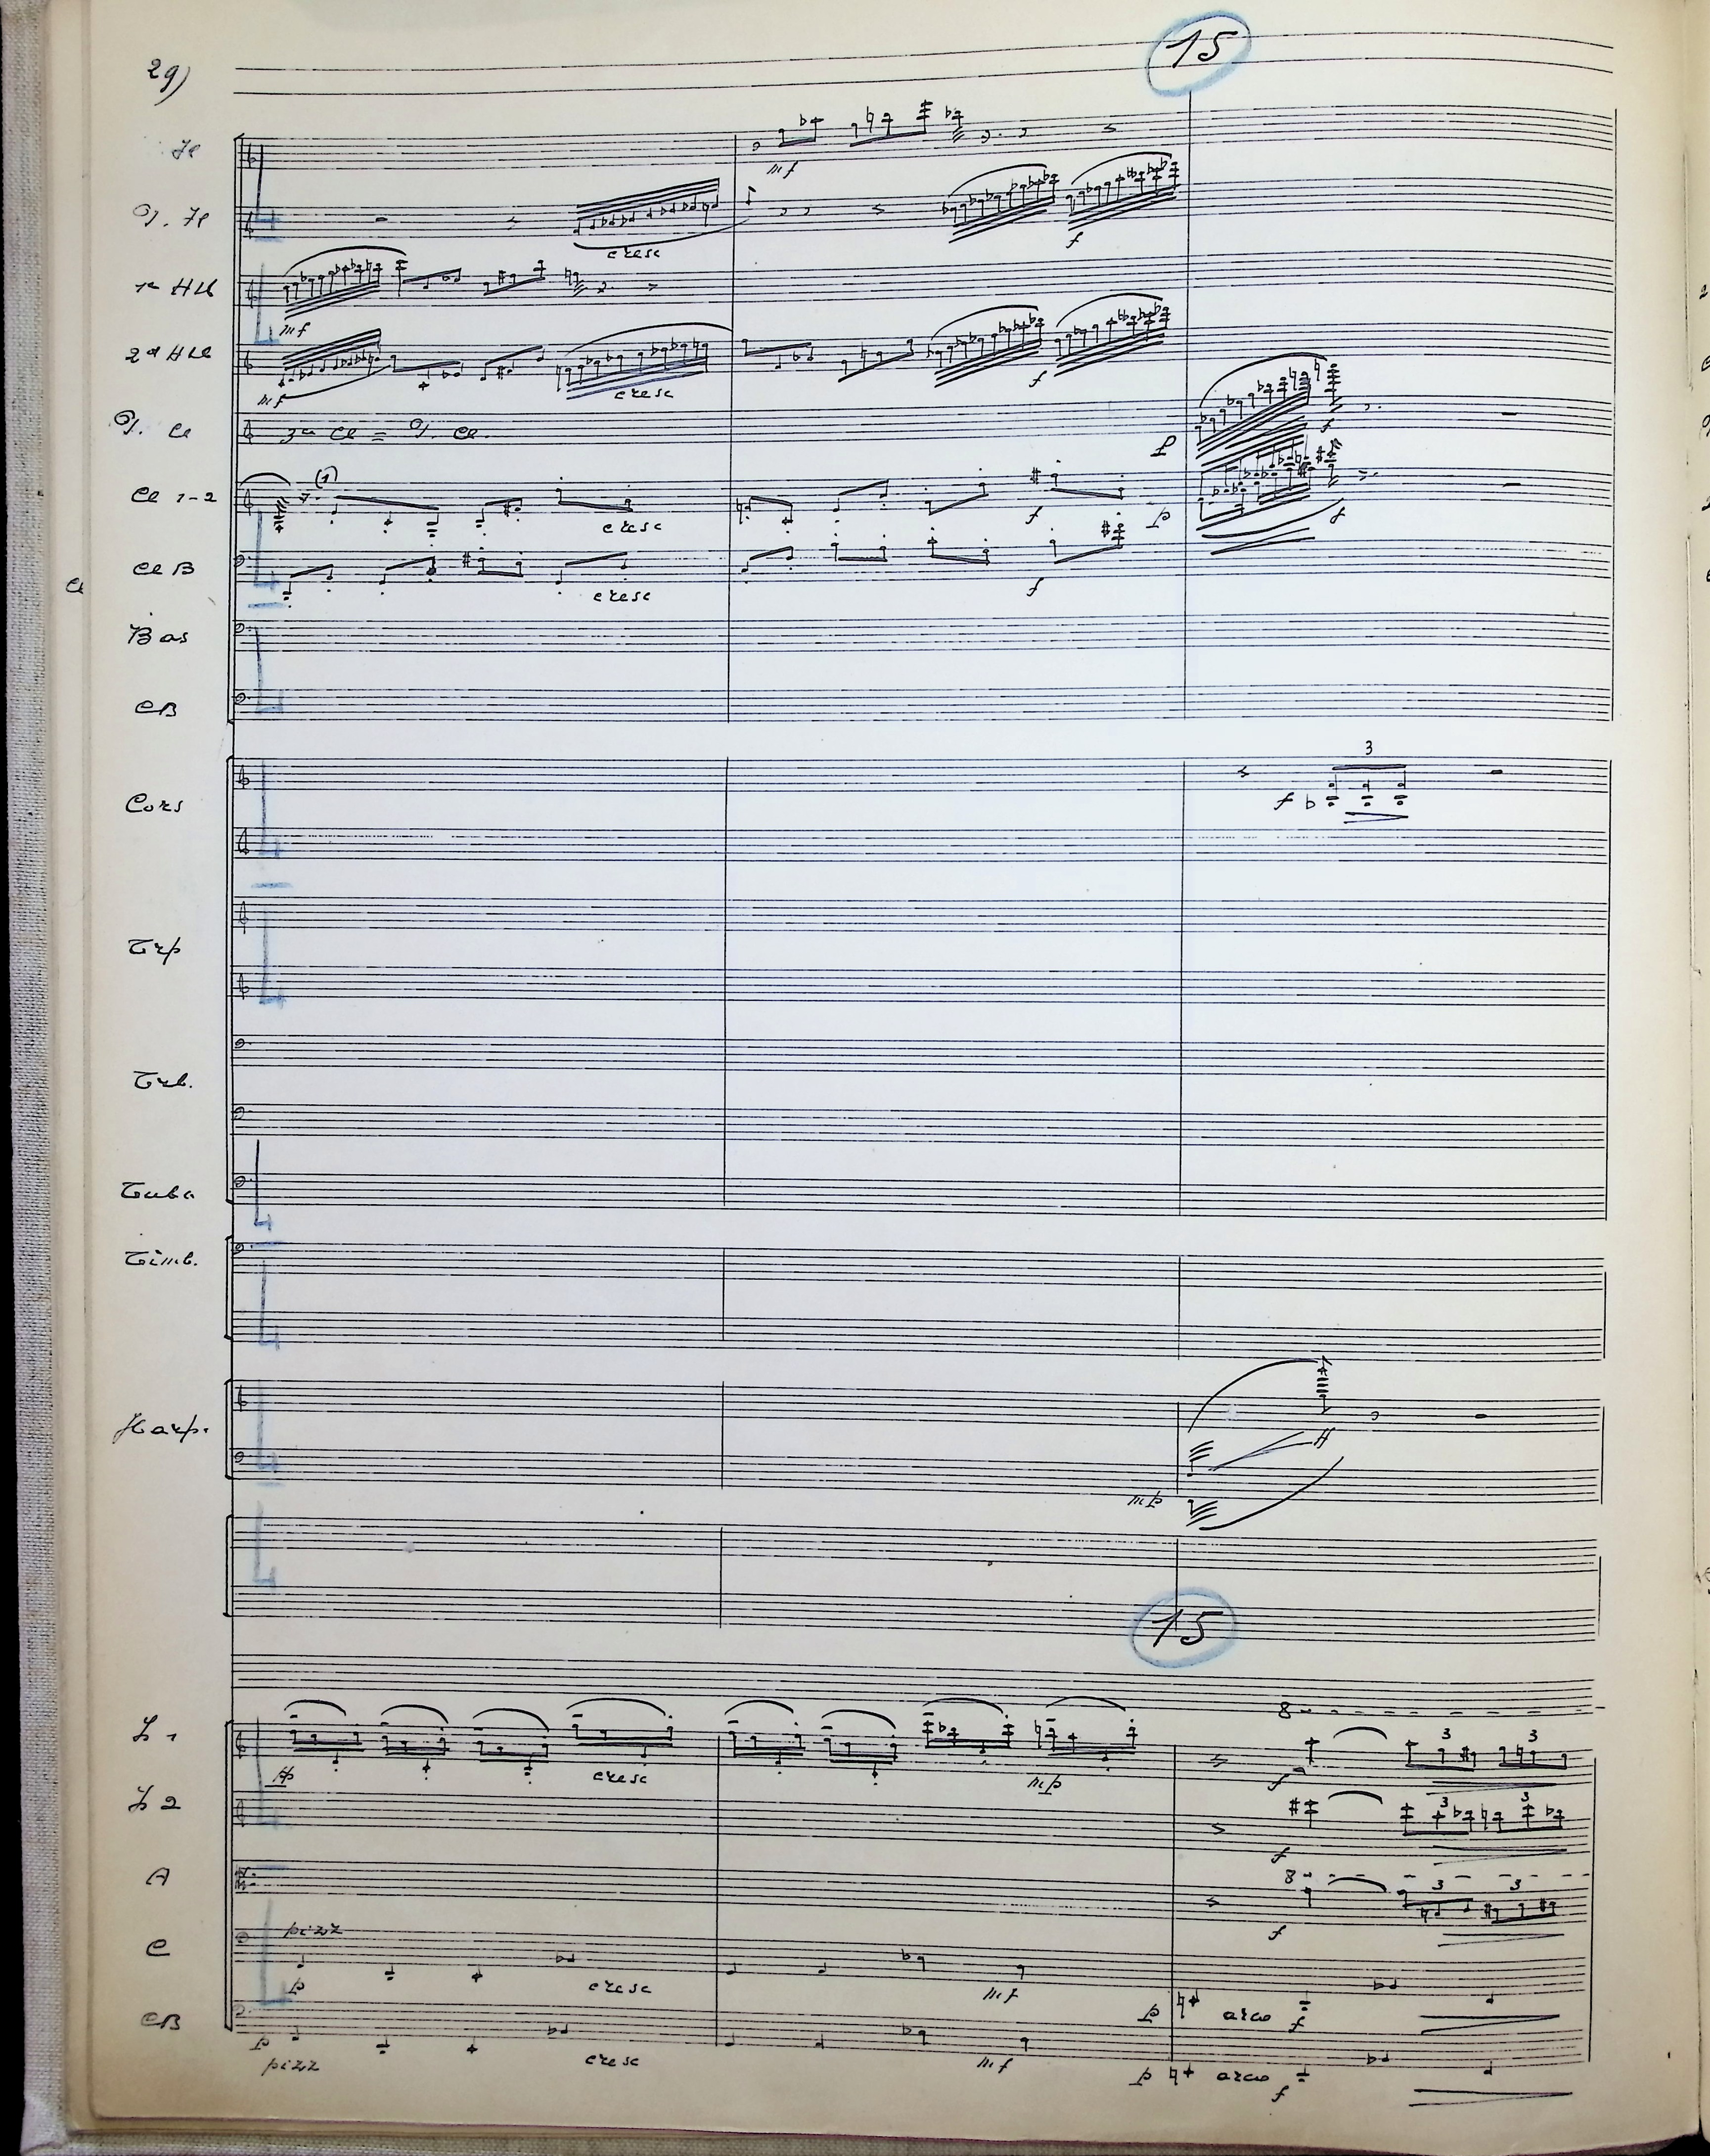 29)
15
Fl
mf
P. Fl
cresc
f
1e Hb
mf
2d Hb
mf
cresc
f
P. Cl
3e Cl = P. Cl.
p
f
Cl 1-2
(1)
cresc
f
p
f
Cl B
cresc
f
Cl
Bas
CB
3
Cors
f
Trp
Trb.
Tuba
Timb.
Harp.
mp
ff
15
8
V 1
pp
cresc
mp
f
3
3
V 2
f
3
3
A
8
f
3
3
C
pizz
p
cresc
mf
p
arco
f
CB
p
pizz
cresc
mf
p
arco
f